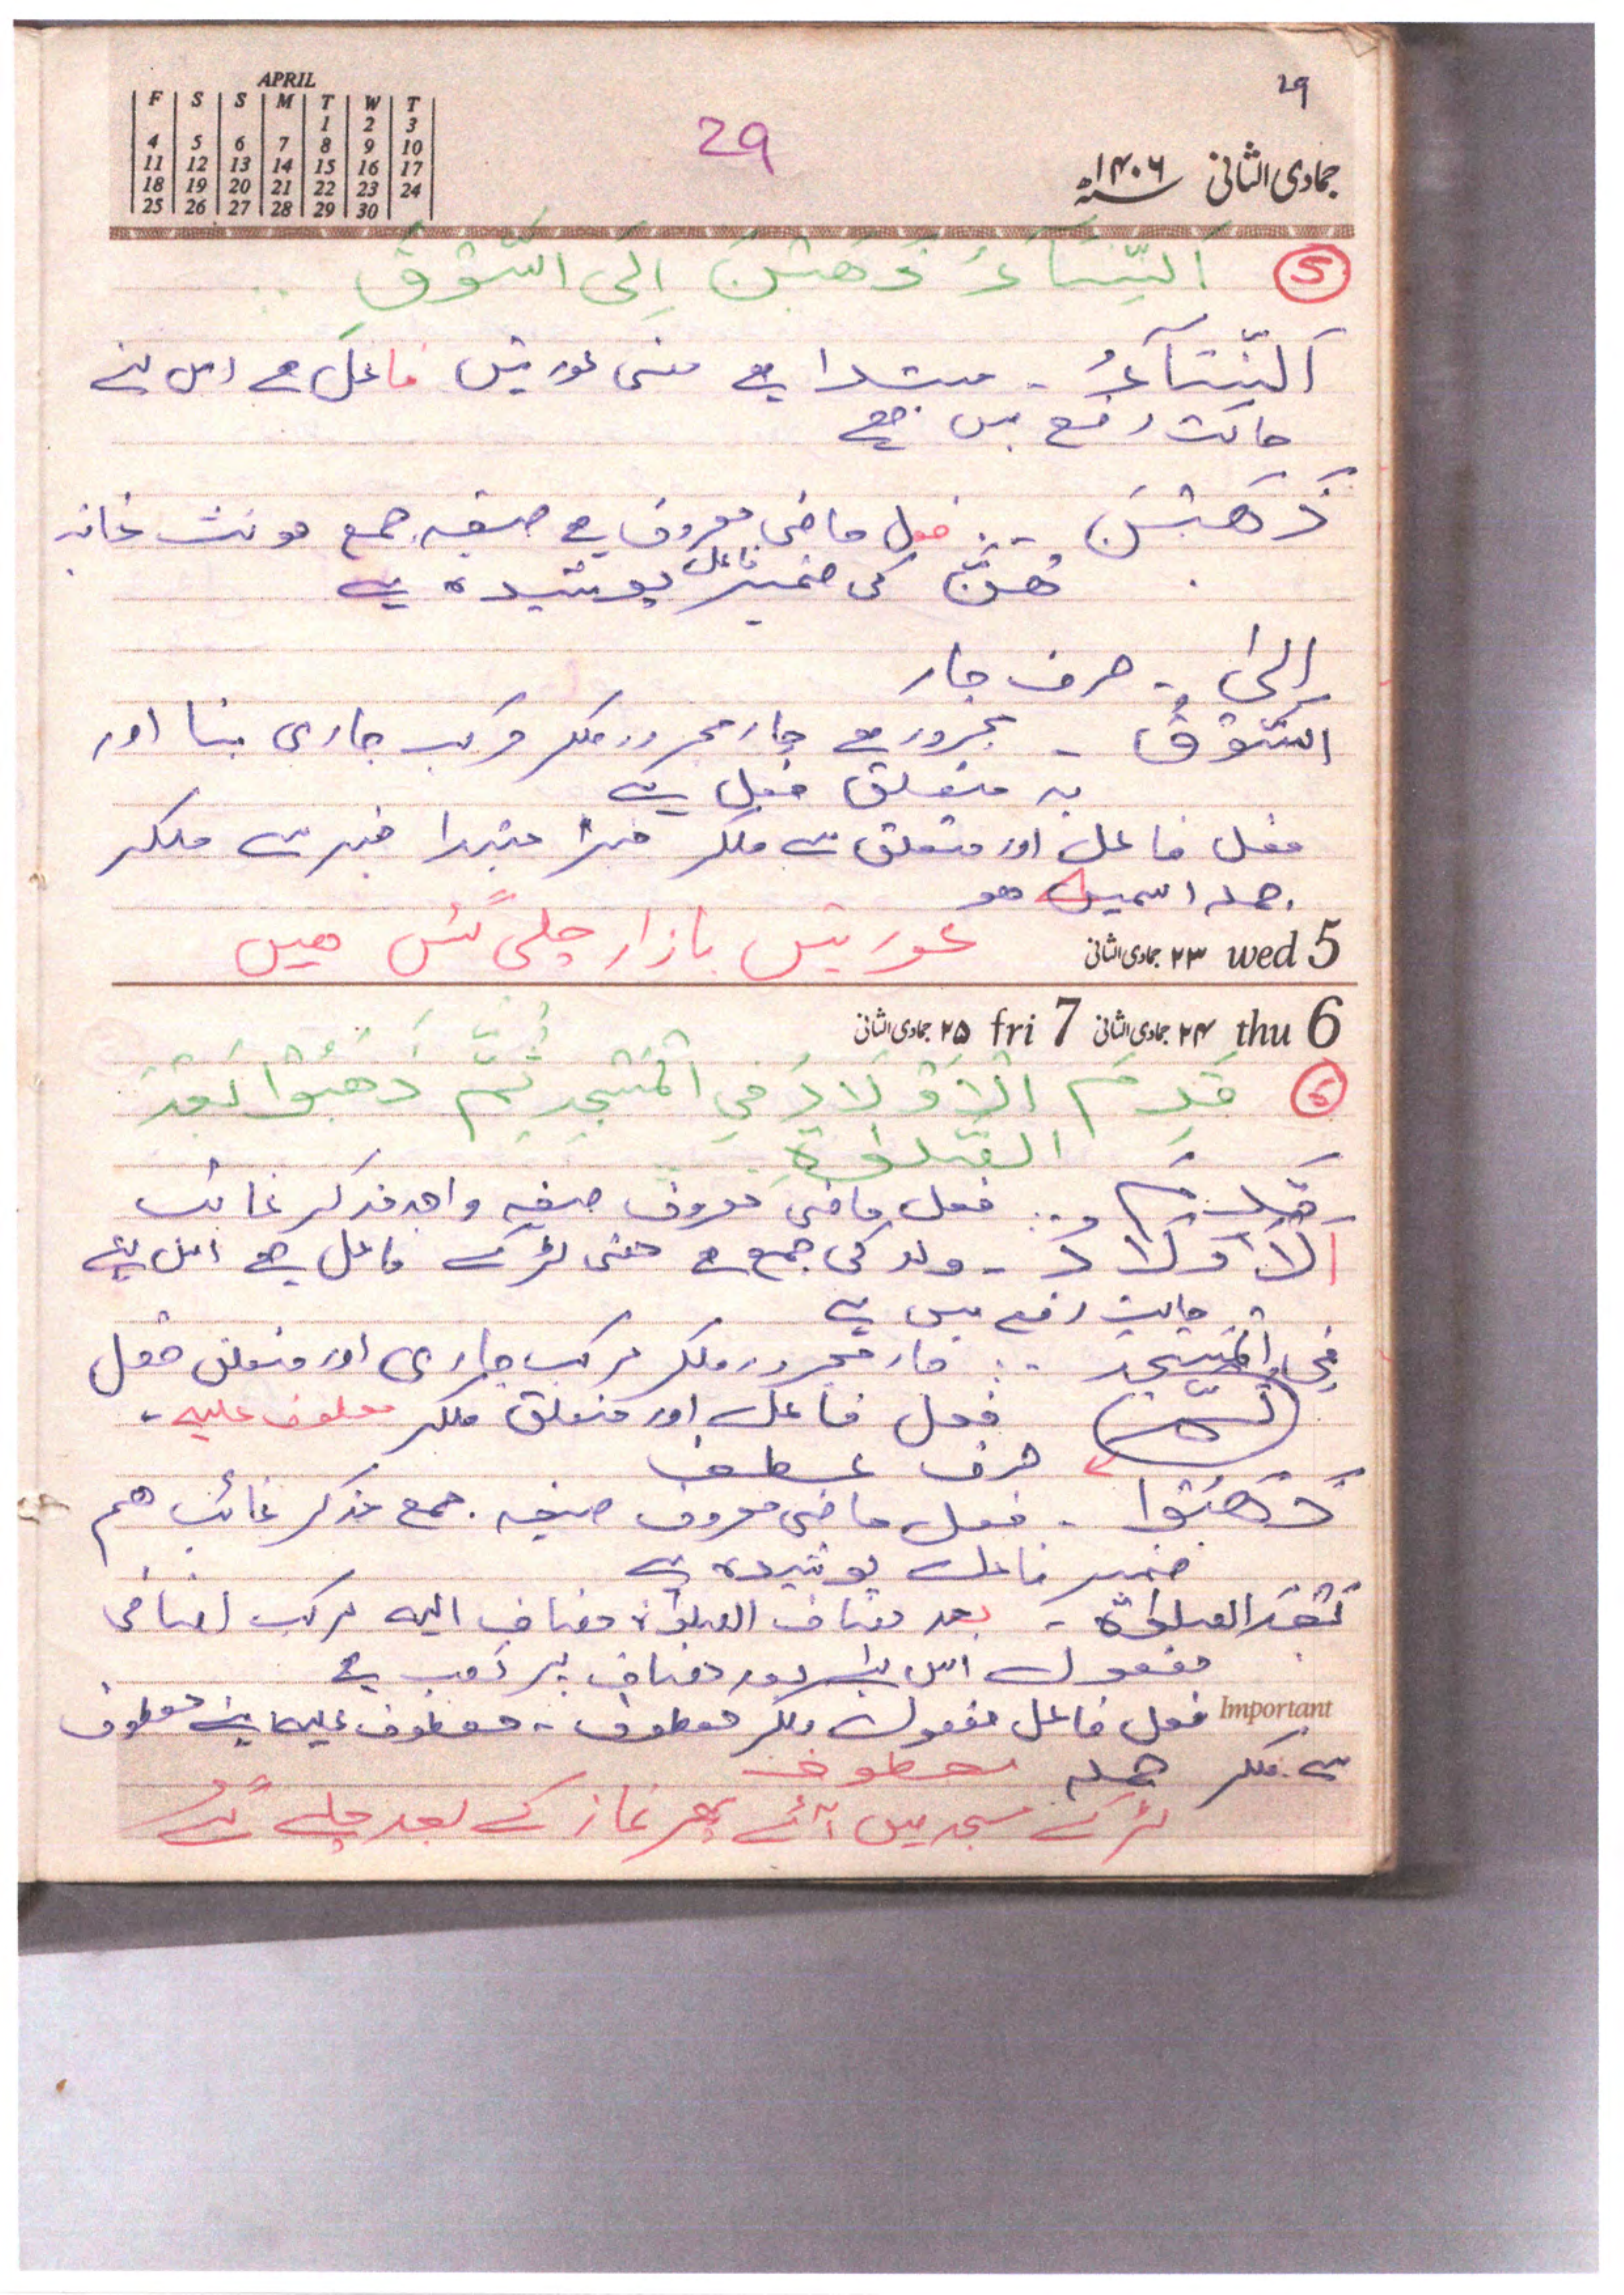 APRIL
F S S M T W T
1 2 3
4 5 6 7 8 9 10
11 12 13 14 15 16 17
18 19 20 21 22 23 24
25 26 27 28 29 30
29
29
جمادی الثانی ۱۴۰۶ھ
5 اَلنِّسَآءُ ذَهَبْنَ اِلَی السُّوْقِ
اَلنِّسَآءُ ۔ مبتدا ہے معنی عورتیں فاعل ہے اس لئے
حالت رفع میں ہے
ذَهَبْنَ ۔۔ فعل ماضی معروف ہے صیغہ جمع مونث غائب
هُنَّ کی ضمیر فاعل پوشیدہ ہے
الیٰ ۔ حرف جار
السُّوْقِ ۔ مجرور ہے جار مجرور ملکر مرکب جاری بنا اور
یہ متعلق فعل ہے
فعل فاعل اور متعلق سے ملکر خبر مبتدا خبر سے ملکر
جملہ اسمیہ ہو
عورتیں بازار چلی گئیں ہیں
wed 5 ۲۳ جمادی الثانی
thu 6 ۲۴ جمادی الثانی fri 7 ۲۵ جمادی الثانی
6 قَدِمَ الْاَوْلَادُ فِي الْمَسْجِدِ ثُمَّ ذَهَبُوْا بَعْدَ
الصَّلوٰةِ
قَدِمَ ۔۔ فعل ماضی معروف صیغہ واحد مذکر غائب
اَلْاَوْلَادُ ۔ ولد کی جمع ہے معنی لڑکے فاعل ہے اس لئے
حالت رفع میں ہے
فِي الْمَسْجِدِ ۔۔ جار مجرور ملکر مرکب جاری اور متعلق فعل
ثُمَّ فعل فاعل اور متعلق ملکر معطوف علیہ ۔
حرف عطف
ذَهَبُوْا ۔ فعل ماضی معروف صیغہ جمع مذکر غائب هم
ضمیر فاعل پوشیدہ ہے
بَعْدَ الصلوٰة ۔ بعد مضاف الصلوٰة مضاف الیہ مرکب اضافی
مفعول اس مضاف پر نصب ہے
Important فعل فاعل مفعول ملکر معطوف ۔ معطوف علیہ اپنے معطوف
سے ملکر جملہ معطوف
لڑکے مسجد میں آئے پھر نماز کے بعد چلے گئے